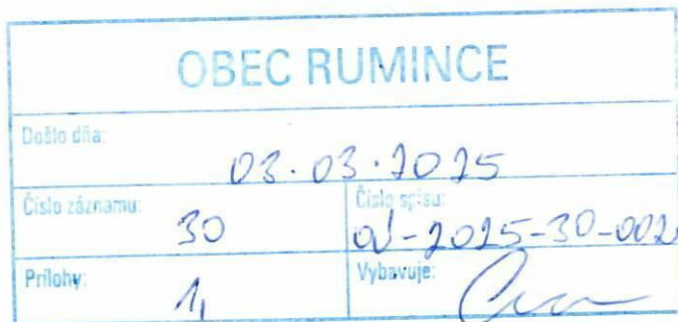 OBEC RUMINCE
Došlo dňa:
03.03.2025
Číslo záznamu:
30
Číslo spisu:
Prílohy:
1,
Vybavuje: